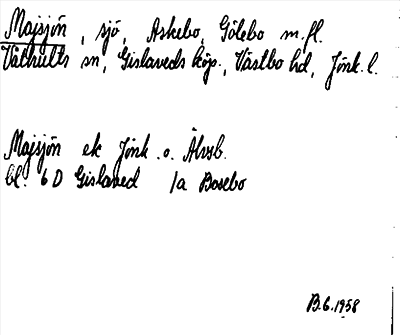 Majsjön, sjö, Askebo, Gölebo m.fl.
Våthults sn, Gislaveds köp., Västbo hd, Jönk. l.
Majsjön ek Jönk. o. Älvsb.
bl. 6 D Gislaved /a Bosebo
B.G.1958